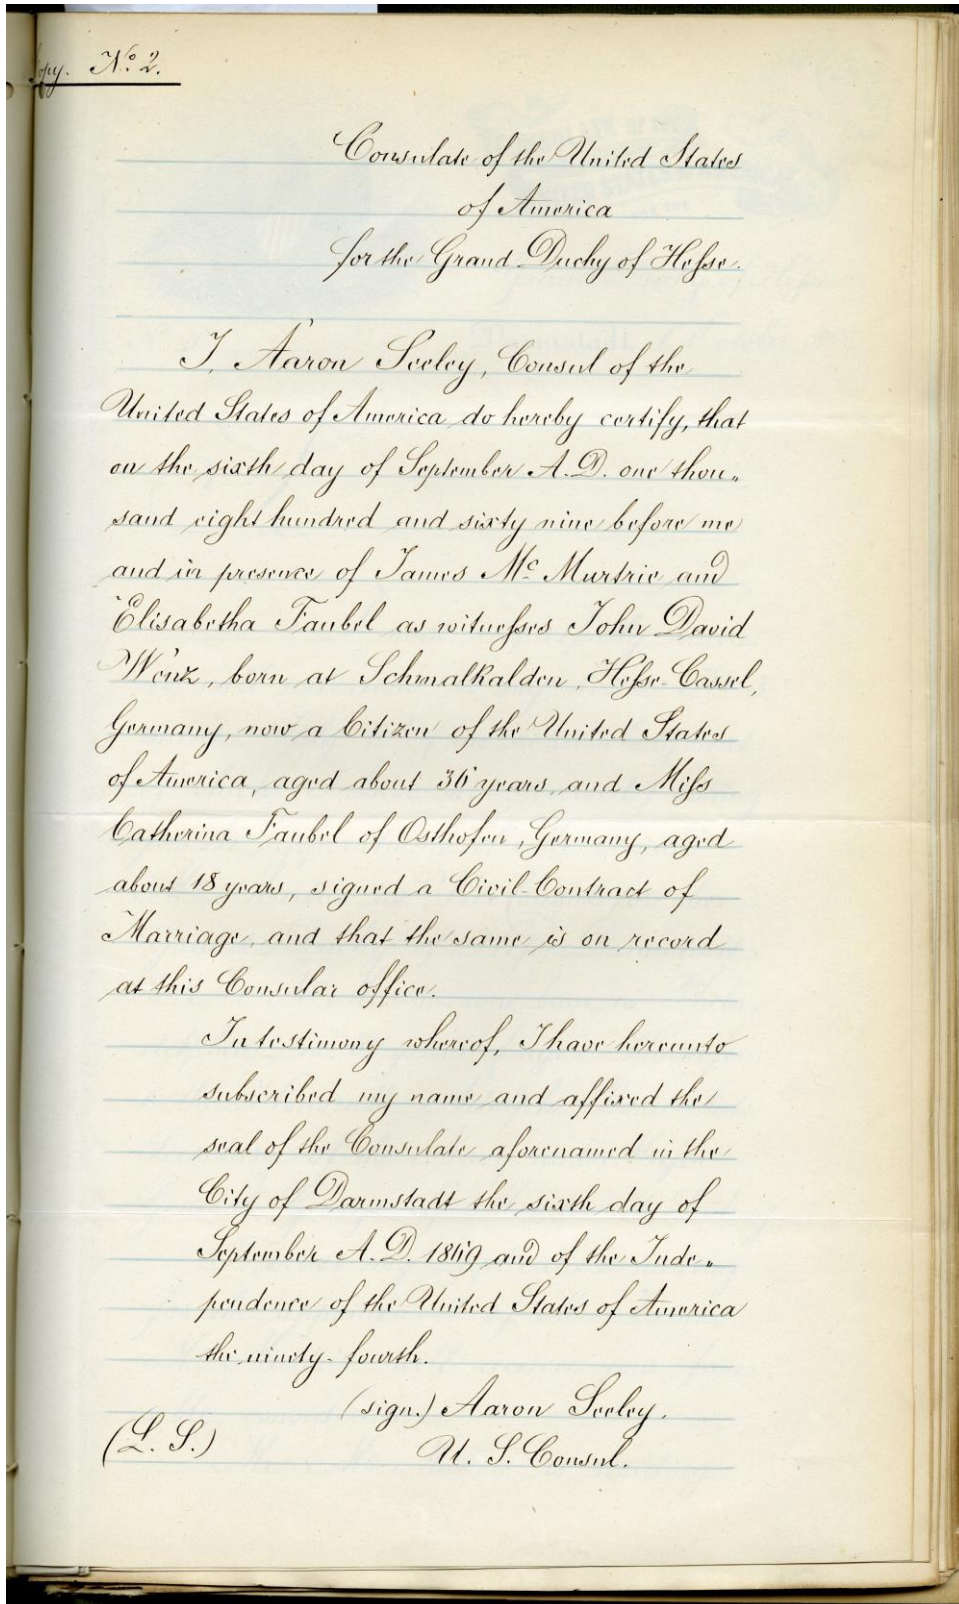 Copy. No. 2.
Consulate of the United States
of America
for the Grand Duchy of Hesse.
I, Aaron Seeley, Consul of the
United States of America do hereby certify, that
on the sixth day of September A. D. one thou„
sand eight hundred and sixty nine before me
and in presence of James Mc Murtrie and
Elisabetha Faubel as witnesses John David
Wenz, born at Schmalkalden, Hesse-Cassel,
Germany, now a Citizen of the United States
of America, aged about 36 years, and Miss
Catherina Faubel of Osthofen, Germany, aged
about 18 years, signed a Civil-Contract of
Marriage, and that the same is on record
at this Consular office.
In testimony whereof, I have hereunto
subscribed my name and affixed the
seal of the Consulate aforenamed in the
City of Darmstadt the sixth day of
September A. D. 1869 and of the Inde„
pendence of the United States of America
the ninety-fourth.
(sign.) Aaron Seeley.
(L. S.) U. S. Consul.